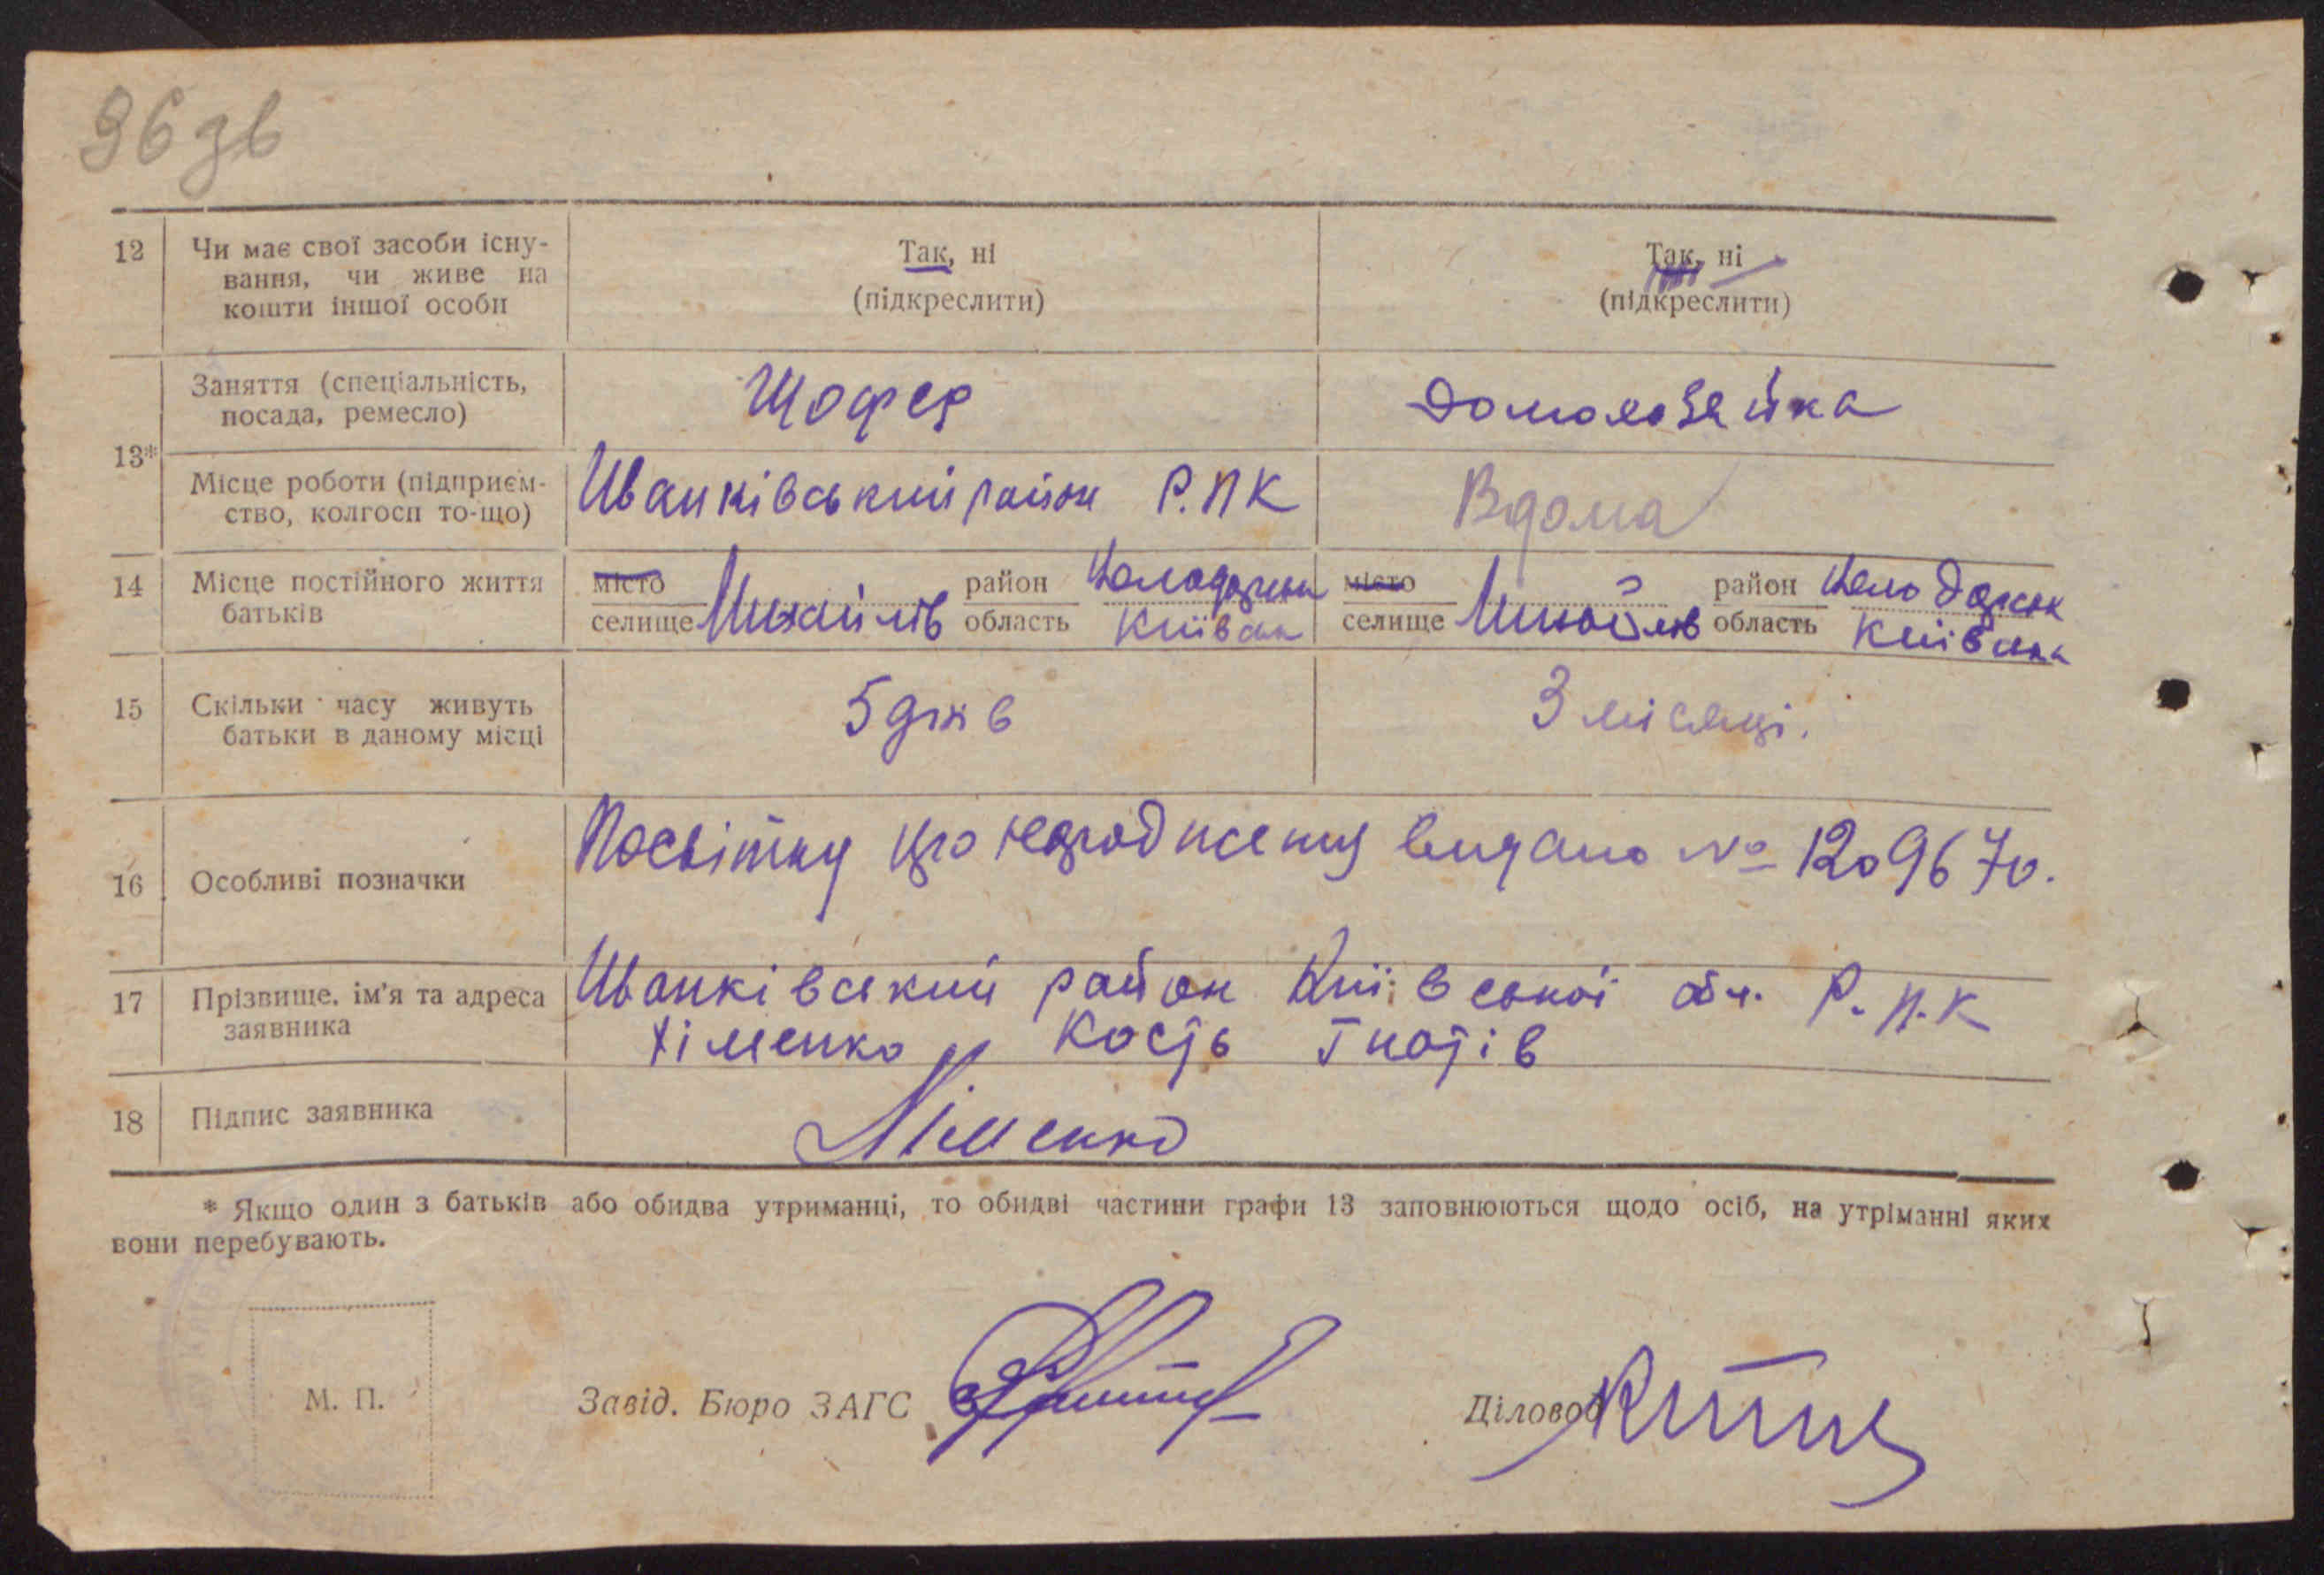 96 зв
12 Чи має свої засоби існу-
вання, чи живе на
кошти іншої особи
Так, ні
(підкреслити)
Так, ні
(підкреслити)
13*
Заняття (спеціальність,
посада, ремесло)
Шофер
Домохозяйка
Місце роботи (підприєм-
ство, колгосп то-що)
Иванківський район Р.П.К
Вдома
14 Місце постійного життя
батьків
місто
селище
район
область Київськ
місто
селище
район
область Київська
15 Скільки часу живуть
батьки в даному місці
5 днів
3 місяці.
16 Особливі позначки
видано № 1209670.
17 Прізвище, ім'я та адреса
заявника
Иванківський район Київської обл. Р.П.К
Хіменко Кость Гнатів
18 Підпис заявника
* Якщо один з батьків або обидва утриманці, то обидві частини графи 13 заповнюються щодо осіб, на утріманні яких
вони перебувають.
М. П.
Завід. Бюро ЗАГС
Діловод